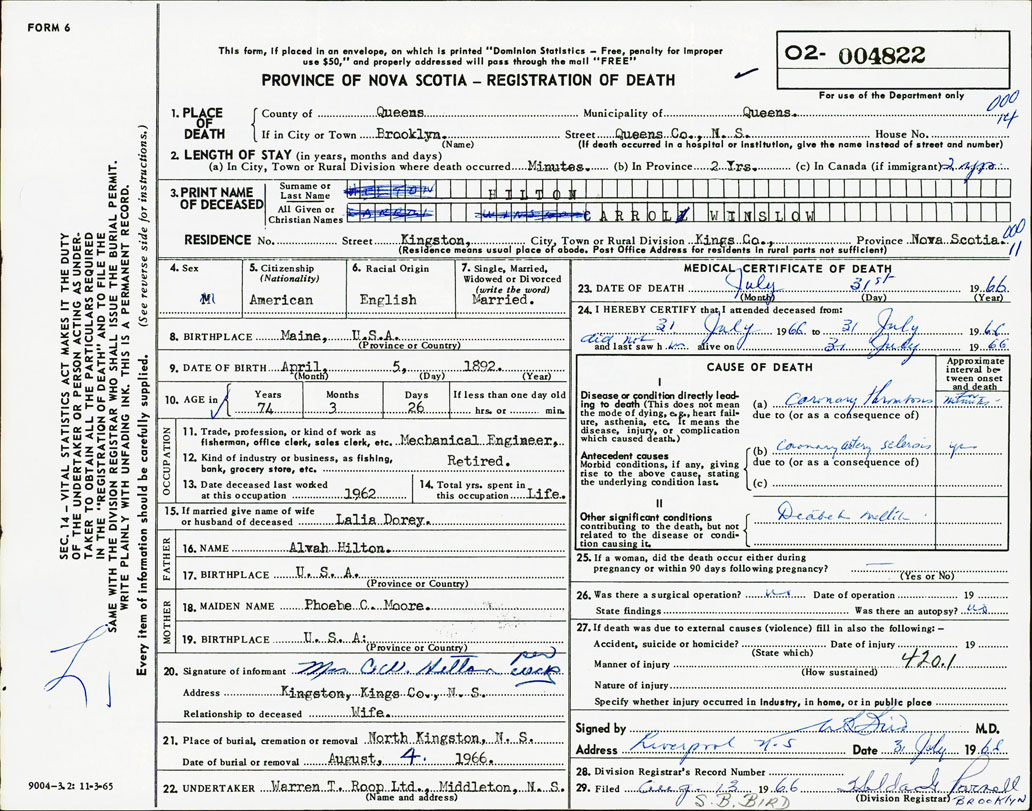 FORM 6
This form, if placed in an envelope, on which is printed "Dominion Statistics – Free, penalty for improper
use $50," and properly addressed will pass through the mail "FREE"
PROVINCE OF NOVA SCOTIA – REGISTRATION OF DEATH
02- 004822
For use of the Department only
000
14
1. PLACE OF DEATH
County of Queens Municipality of Queens.
If in City or Town Brooklyn. Street Queens Co., N. S. House No.
(Name) (If death occurred in a hospital or institution, give the name instead of street and number)
2. LENGTH OF STAY (in years, months and days)
(a) In City, Town or Rural Division where death occurred Minutes. (b) In Province 2 Yrs. (c) In Canada (if immigrant) 2 yrs.
3. PRINT NAME OF DECEASED
Surname or Last Name HILTON
All Given or Christian Names CARROLL WINSLOW
RESIDENCE No. Street Kingston, City, Town or Rural Division Kings Co., Province Nova Scotia.
(Residence means usual place of abode. Post Office Address for residents in rural parts not sufficient)
000
11
4. Sex M
5. Citizenship (Nationality) American
6. Racial Origin English
7. Single, Married, Widowed or Divorced (write the word) Married.
8. BIRTHPLACE Maine, U.S.A.
(Province or Country)
9. DATE OF BIRTH April, 5, 1892.
(Month) (Day) (Year)
10. AGE in Years 74 Months 3 Days 26 If less than one day old hrs. or min.
OCCUPATION
11. Trade, profession, or kind of work as fisherman, office clerk, sales clerk, etc. Mechanical Engineer,
12. Kind of industry or business, as fishing, bank, grocery store, etc. Retired.
13. Date deceased last worked at this occupation 1962
14. Total yrs. spent in this occupation Life.
15. If married give name of wife or husband of deceased Lalia Dorey.
FATHER
16. NAME Alvah Hilton.
17. BIRTHPLACE U. S. A.
(Province or Country)
MOTHER
18. MAIDEN NAME Phoebe C. Moore.
19. BIRTHPLACE U. S. A.
(Province or Country)
20. Signature of informant Mrs C.W. Hilton per
Address Kingston, Kings Co., N. S.
Relationship to deceased Wife.
21. Place of burial, cremation or removal North Kingston, N. S.
Date of burial or removal August, 4. 1966.
22. UNDERTAKER Warren T. Roop Ltd., Middleton, N. S.
(Name and address)
MEDICAL CERTIFICATE OF DEATH
23. DATE OF DEATH July 31st 1966
(Month) (Day) (Year)
24. I HEREBY CERTIFY that I attended deceased from:
31 July 1966 to 31 July 1966
did not
and last saw h im alive on 31 July 1966
CAUSE OF DEATH
Approximate interval between onset and death
I
Disease or condition directly leading to death (This does not mean the mode of dying, e.g., heart failure, asthenia, etc. It means the disease, injury, or complication which caused death.)
(a) Coronary thrombosis minutes
due to (or as a consequence of)
Antecedent causes
Morbid conditions, if any, giving rise to the above cause, stating the underlying condition last.
(b) Coronary artery sclerosis yrs
due to (or as a consequence of)
(c)
II
Other significant conditions contributing to the death, but not related to the disease or condition causing it.
25. If a woman, did the death occur either during pregnancy or within 90 days following pregnancy?
(Yes or No)
26. Was there a surgical operation? no Date of operation 19
State findings Was there an autopsy? no
27. If death was due to external causes (violence) fill in also the following: –
Accident, suicide or homicide? Date of injury 19
(State which)
Manner of injury 420.1
(How sustained)
Nature of injury
Specify whether injury occurred in industry, in home, or in public place
Signed by M.D.
Address Liverpool N.S Date 31 July 1966
28. Division Registrar's Record Number
29. Filed Aug. 13 1966
(Division Registrar) BROOKLYN
S.B. BIRD
SEC. 14 – VITAL STATISTICS ACT MAKES IT THE DUTY
OF THE UNDERTAKER OR PERSON ACTING AS UNDER-
TAKER TO OBTAIN ALL THE PARTICULARS REQUIRED
IN THE "REGISTRATION OF DEATH" AND TO FILE THE
SAME WITH THE DIVISION REGISTRAR WHO SHALL ISSUE THE BURIAL PERMIT.
WRITE PLAINLY WITH UNFADING INK. THIS IS A PERMANENT RECORD.
Every item of information should be carefully supplied. (See reverse side for instructions.)
9004-3.2: 11-3-65